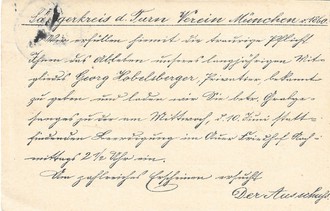 Sängerkreis d. Turn Verein München v. 1860.
Wir erfüllen hiemit die traurige Pflicht
Ihnen das Ableben unseres langjährigen Mit-
glieds Georg Hobelsberger, Privatier, bekannt
zu geben und laden wir Sie betr. Grabge-
sanges zu der am Mittwoch, d. 10. Juni statt-
findenden Beerdigung im Friedhof Nach-
mittags 2 ½ Uhr ein.
Um zahlreiches Erscheinen ersucht
Der Ausschuß